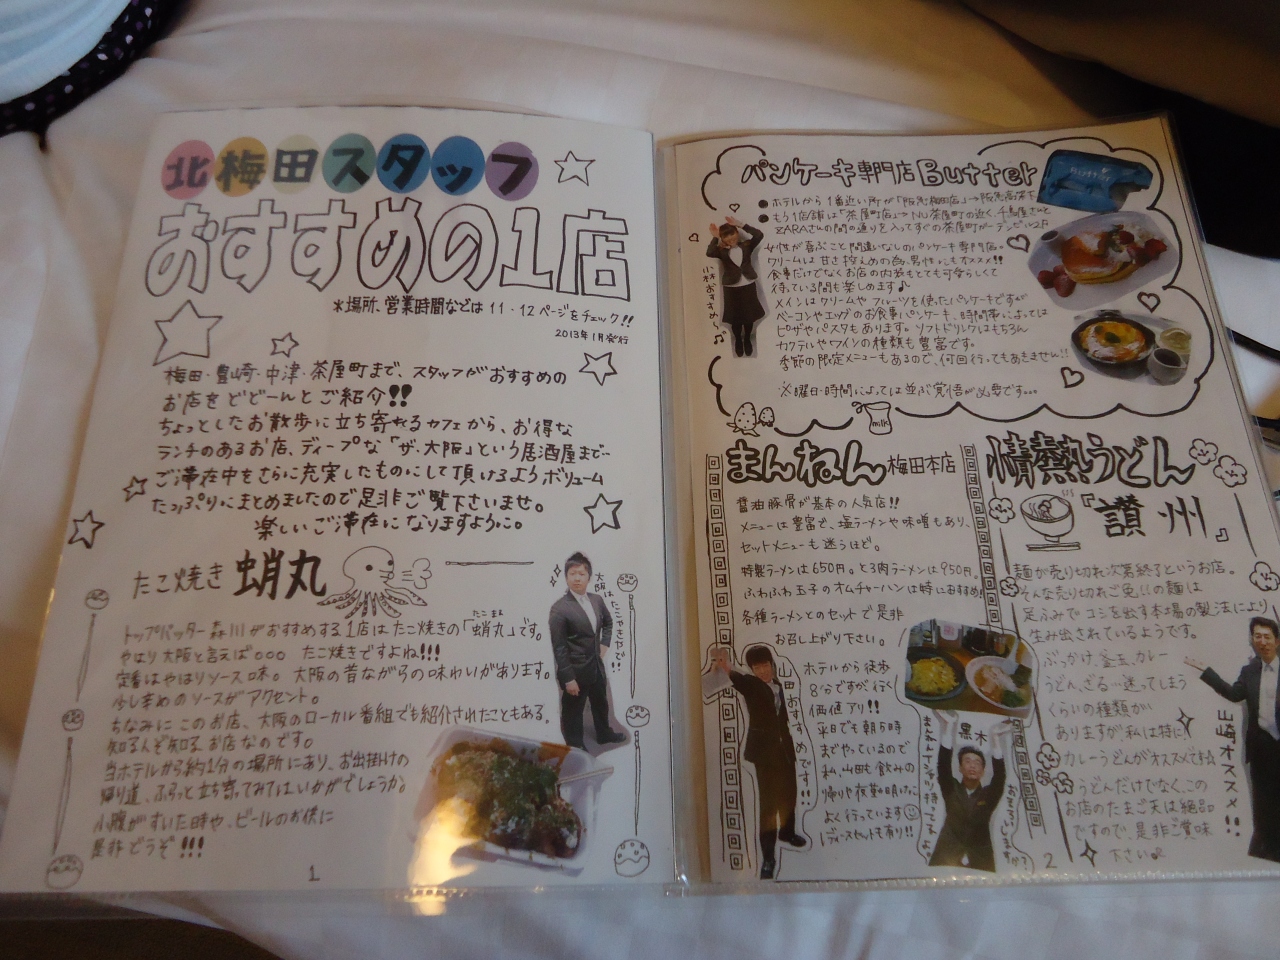 北梅田スタッフ
おすすめの1店
*場所、営業時間などは11・12ページをチェック!!
2013年1月発行
梅田・豊崎・中津・茶屋町まで、スタッフがおすすめの
お店をどどーんとご紹介!!
ちょっとしたお散歩に立ち寄れるカフェから、お得な
ランチのあるお店、ディープな「ザ・大阪」という居酒屋まで…
ご滞在中をさらに充実したものにして頂けるようボリューム
たっぷりにまとめましたので是非ご覧下さいませ。
楽しいご滞在になりますように。
たこ焼き 蛸丸
大阪はたこやきやで!!
たこまる
トップバッター森川がおすすめする1店はたこ焼きの「蛸丸」です。
やはり大阪と言えば○○○ たこ焼きですよね!!!
定番はやはりソース味。大阪の昔ながらの味わいがあります。
少し辛めのソースがアクセント。
ちなみにこのお店、大阪のローカル番組でも紹介されたこともある。
知る人ぞ知るお店なのです。
当ホテルから約1分の場所にあり、お出掛けの
帰り道、ふらっと立ち寄ってみてはいかがでしょうか。
小腹がすいた時や、ビールのお供に
是非どうぞ!!!
1
パンケーキ専門店Butter
Butter
●ホテルから1番近い所が「阪急梅田店」→阪急
●もう1店舗は「茶屋町店」→NU茶屋町の近く、
ZARAさんの間の通りを入ってすぐの茶屋町ガーデンビル2F
女性が喜ぶこと間違いなしのパンケーキ専門店。
クリームは甘さ控えめの為、男性にもオススメ!!
食事だけでなくお店の内装もとても可愛らしくて
待っている間も楽しめます♪
メインはクリームやフルーツを使ったパンケーキですが
ベーコンやエッグのお食事パンケーキ、時間帯によっては
ピザやパスタもあります。ソフトドリンクはもちろん
カクテルやワインの種類も豊富です。
季節の限定メニューもあるので、何回行ってもあきません!!
※曜日・時間によっては並ぶ覚悟が必要です…
小林おすすめ
milk
まんねん 梅田本店
醤油豚骨が基本の人気店!!
メニューは豊富で、塩ラーメンや味噌もあり、
セットメニューも迷うほど。
特製ラーメンは650円。と3肉ラーメンは950円。
ふわふわ玉子のオムチャーハンは特におすすめ!
各種ラーメンとのセットで是非
お召し上がり下さい。
ホテルから徒歩
8分ですが、行く
価値アリ!!
平日でも朝5時
までやっているので
私、山田も飲みの
帰りや夜勤明けに
よく行っています
レディースセットも有り!!
山田おすすめです!!
黒木
情熱うどん
『讃州』
麺が売り切れ次第終了というお店。
そんな売り切れご免!!の麺は
足ふみでコシを出す本場の製法により
生み出されているようです。
ぶっかけ、釜玉、カレー
うどん、ざる…迷ってしまう
くらいの種類が
ありますが私は特に
カレーうどんがオススメです☆
うどんだけでなく、この
お店のたまご天は絶品
ですので、是非ご賞味
下さい♪
山崎オススメ!!
2